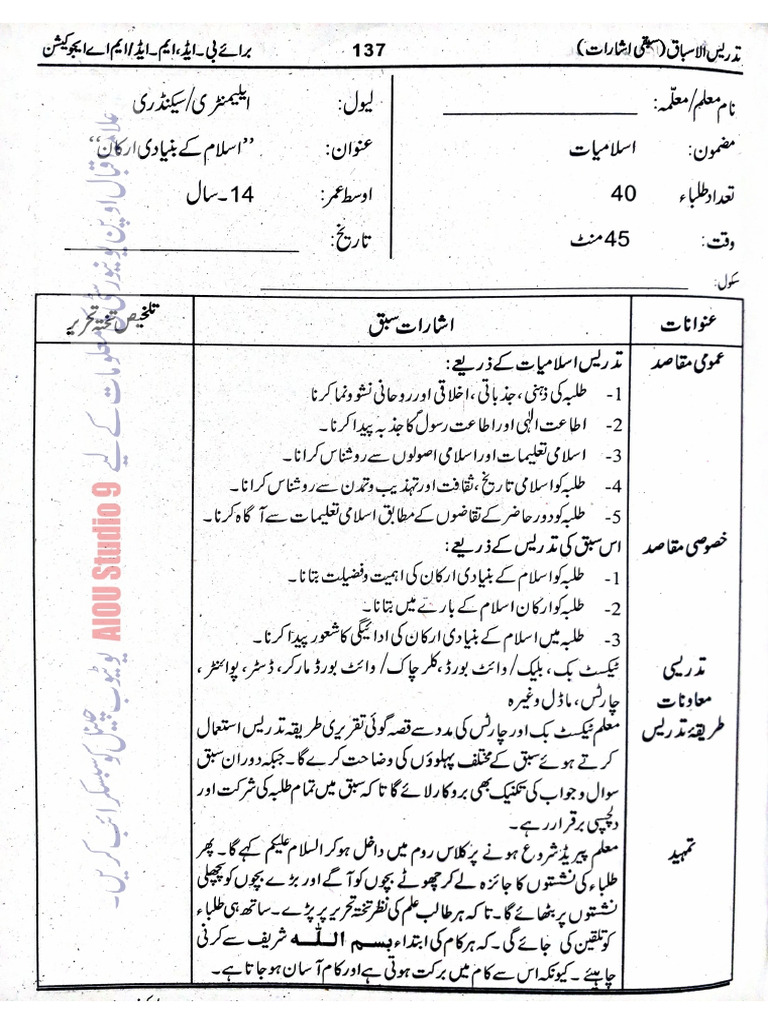 تدریس الاسباق (سبقی اشارات) 137 برائے بی۔ایڈ، ایم۔ایڈ/ایم اے ایجوکیشن
نام معلم/معلّمہ: لیول: ایلیمنٹری/سیکنڈری
مضمون: اسلامیات عنوان: ”اسلام کے بنیادی ارکان“
تعداد طلباء 40 اوسط عمر: 14۔سال
وقت: 45 منٹ تاریخ:
سکول:
عنوانات اشارات سبق تلخیص تختہ تحریر
عمومی مقاصد تدریس اسلامیات کے ذریعے:
1- طلبہ کی ذہنی، جذباتی، اخلاقی اور روحانی نشوونما کرنا
2- اطاعت الٰہی اور اطاعت رسولؐ کا جذبہ پیدا کرنا۔
3- اسلامی تعلیمات اور اسلامی اصولوں سے روشناس کرانا۔
4- طلبہ کو اسلامی تاریخ، ثقافت اور تہذیب و تمدن سے روشناس کرانا۔
5- طلبہ کو دور حاضر کے تقاضوں کے مطابق اسلامی تعلیمات سے آگاہ کرنا۔
خصوصی مقاصد اس سبق کی تدریس کے ذریعے:
1- طلبہ کو اسلام کے بنیادی ارکان کی اہمیت و فضیلت بتانا۔
2- طلبہ کو ارکان اسلام کے بارے میں بتانا۔
3- طلبہ میں اسلام کے بنیادی ارکان کی ادائیگی کا شعور پیدا کرنا۔
تدریسی ٹیکسٹ بک، بلیک/وائٹ بورڈ، کلر چاک/وائٹ بورڈ مارکر، ڈسٹر، پوائنٹر،
معاونات چارٹس، ماڈل وغیرہ
طریقۂ تدریس معلم ٹیکسٹ بک اور چارٹس کی مدد سے قصہ گوئی تقریری طریقہ تدریس استعمال
کرتے ہوئے سبق کے مختلف پہلوؤں کی وضاحت کرے گا۔ جبکہ دوران سبق
سوال و جواب کی تکنیک بھی بروکار لائے گا تاکہ سبق میں تمام طلبہ کی شرکت اور
دلچسپی برقرار رہے۔
تمہید معلم پیریڈ شروع ہونے پر کلاس روم میں داخل ہوکر السلام علیکم کہے گا۔ پھر
طلباء کی نشستوں کا جائزہ لے کر چھوٹے بچوں کو آگے اور بڑے بچوں کو پچھلی
نشستوں پر بٹھائے گا۔ تاکہ ہر طالب علم کی نظر تختہ تحریر پر پڑے۔ ساتھ ہی طلباء
کو تلقین کی جائے گی۔ کہ ہر کام کی ابتداء بسم اللہ شریف سے کرنی
چاہئے۔ کیونکہ اس سے کام میں برکت ہوتی ہے اور کام آسان ہو جاتا ہے۔
علامہ اقبال اوپن یونیورسٹی معلومات کے لیے AIOU Studio 9 یوٹیوب چینل کو سبسکرائب کریں۔